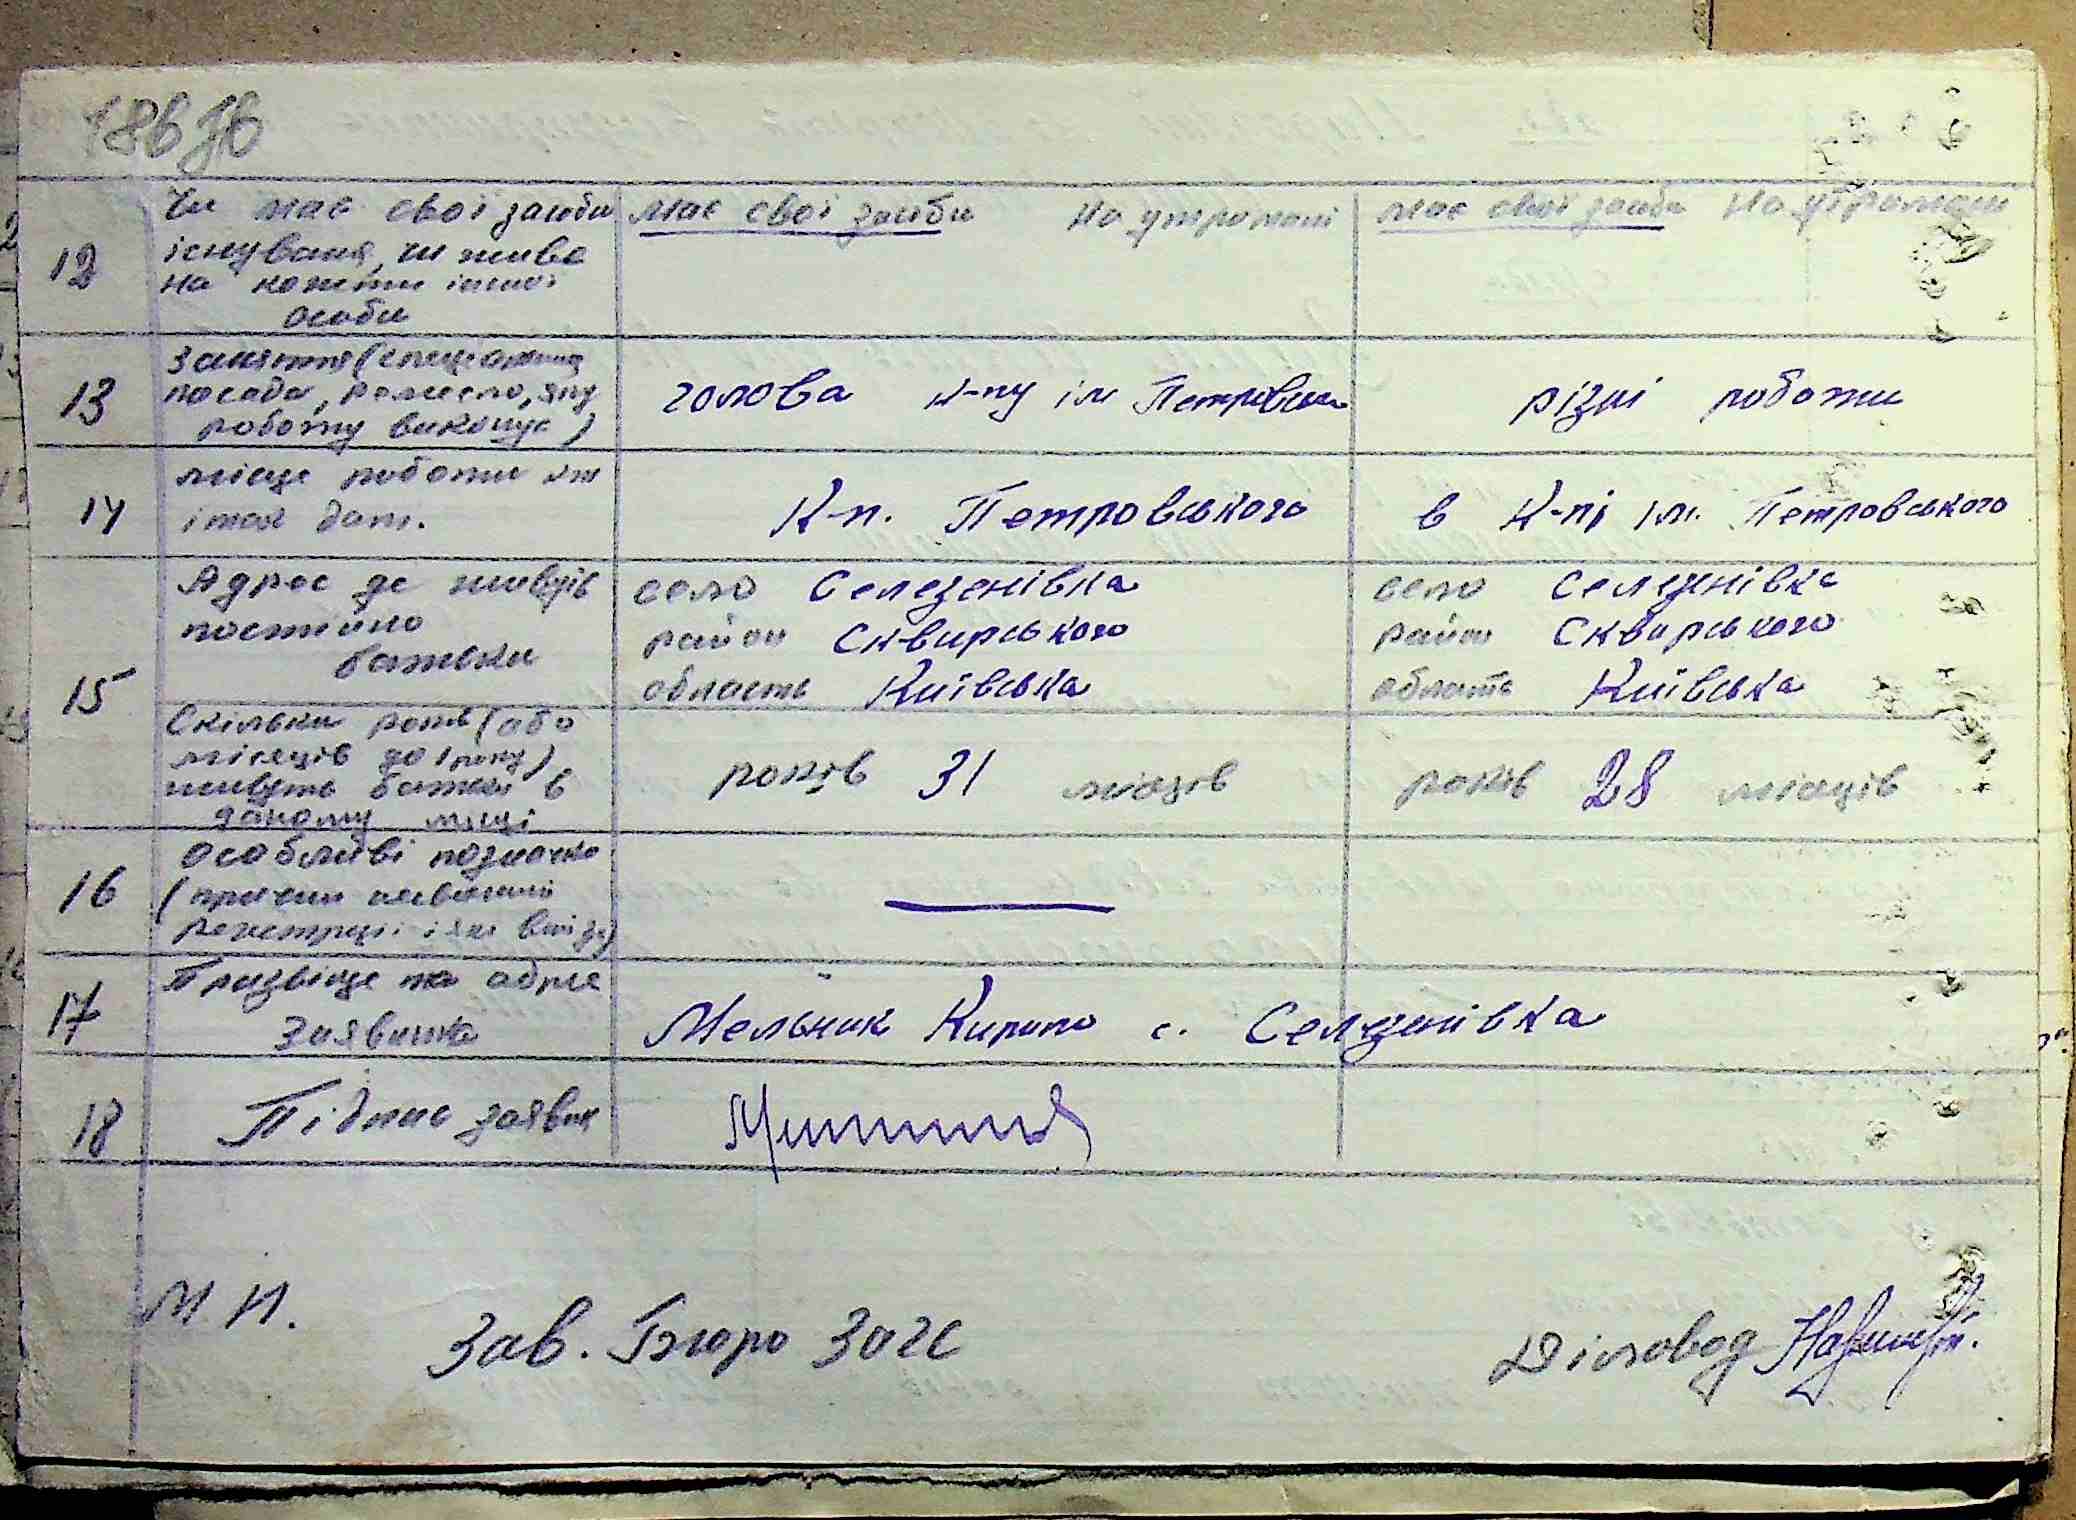 12
Чи має свої засоби
існуваня, чи живе
на кошти іншої
особи
має свої засоби на утримані
має свої засоби на утримані
13
Заняття (спеціальність
посада, ремесло, яку
роботу виконує)
голова к-пу ім Петровськ
різні роботи
14
місце роботи
К-п. Петровського
в К-пі ім. Петровського
15
Адрес де живуть
постійно
батьки
село Селезенівка
район Сквирського
область Київська
село Селезнівка
район Сквирського
область Київська
Скільки років (або
місяців до 1 року)
живуть батьки в
даному місці
років 31 місяців
років 28 місяців
16
Особливі позначки
(причини
регстрації і
17
Призвіще та адрес
заявника
Мельник Кирило с. Селезенівка
18
Підпис заявник
М П.
Зав. Бюро Загс
Діловод